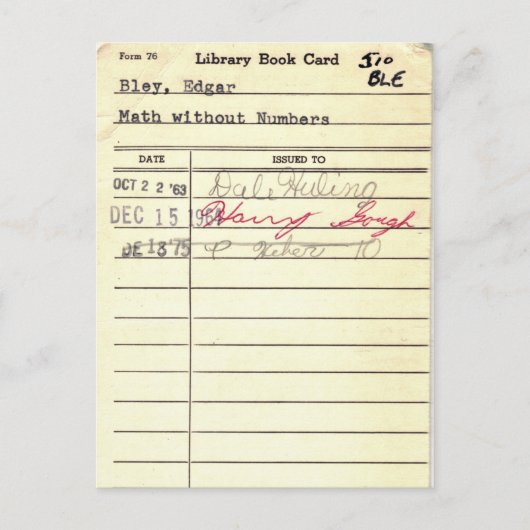 Form 76 Library Book Card 510
BLE
Bley, Edgar
Math without Numbers
DATE ISSUED TO
OCT 22 '63 Dale Huling
DEC 15 1964 Harry Gough
DE 13 '75 Heber 10